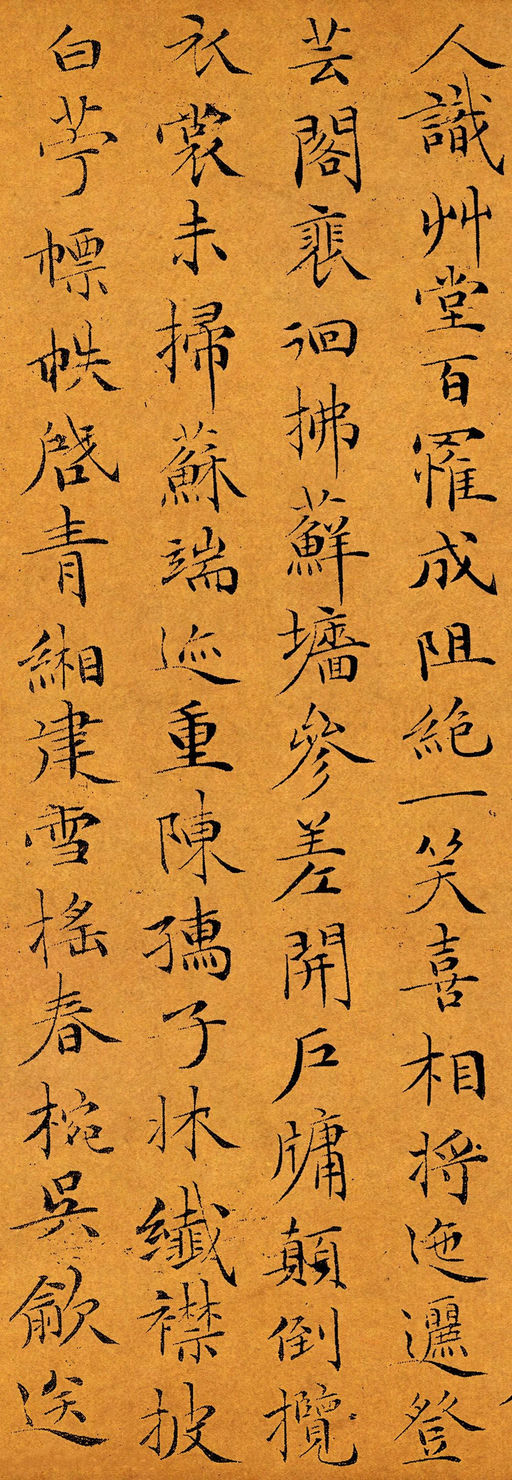 人識艸堂百罹成阻絶一笑喜相將迤邐登
芸閣裵徊拂蘚墻參差開戶牖顛倒攬
衣裳未掃蘇端迹重陳孺子牀纖襟披
白苧幖帙啓青緗建雪榣春椀吳歈送